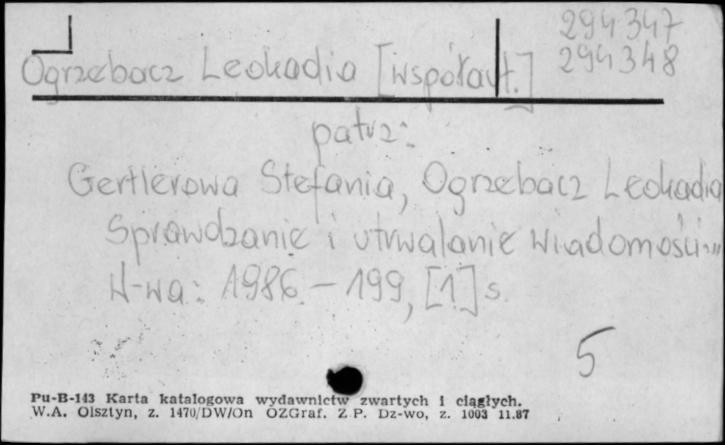 294347
Ogrzebacz Leokadia [współaut.] 294348
patrz:
Gertlerowa Stefania, Ogrzebacz Leokadia
Sprawdzanie i utrwalanie wiadomości...
W-wa: 1986. – 199, [1] s.
5
Pu-B-143 Karta katalogowa wydawnictw zwartych i ciągłych.
W.A. Olsztyn, z. 1470/DW/On OZGraf. Z.P. Dz-wo, z. 1003 11.87